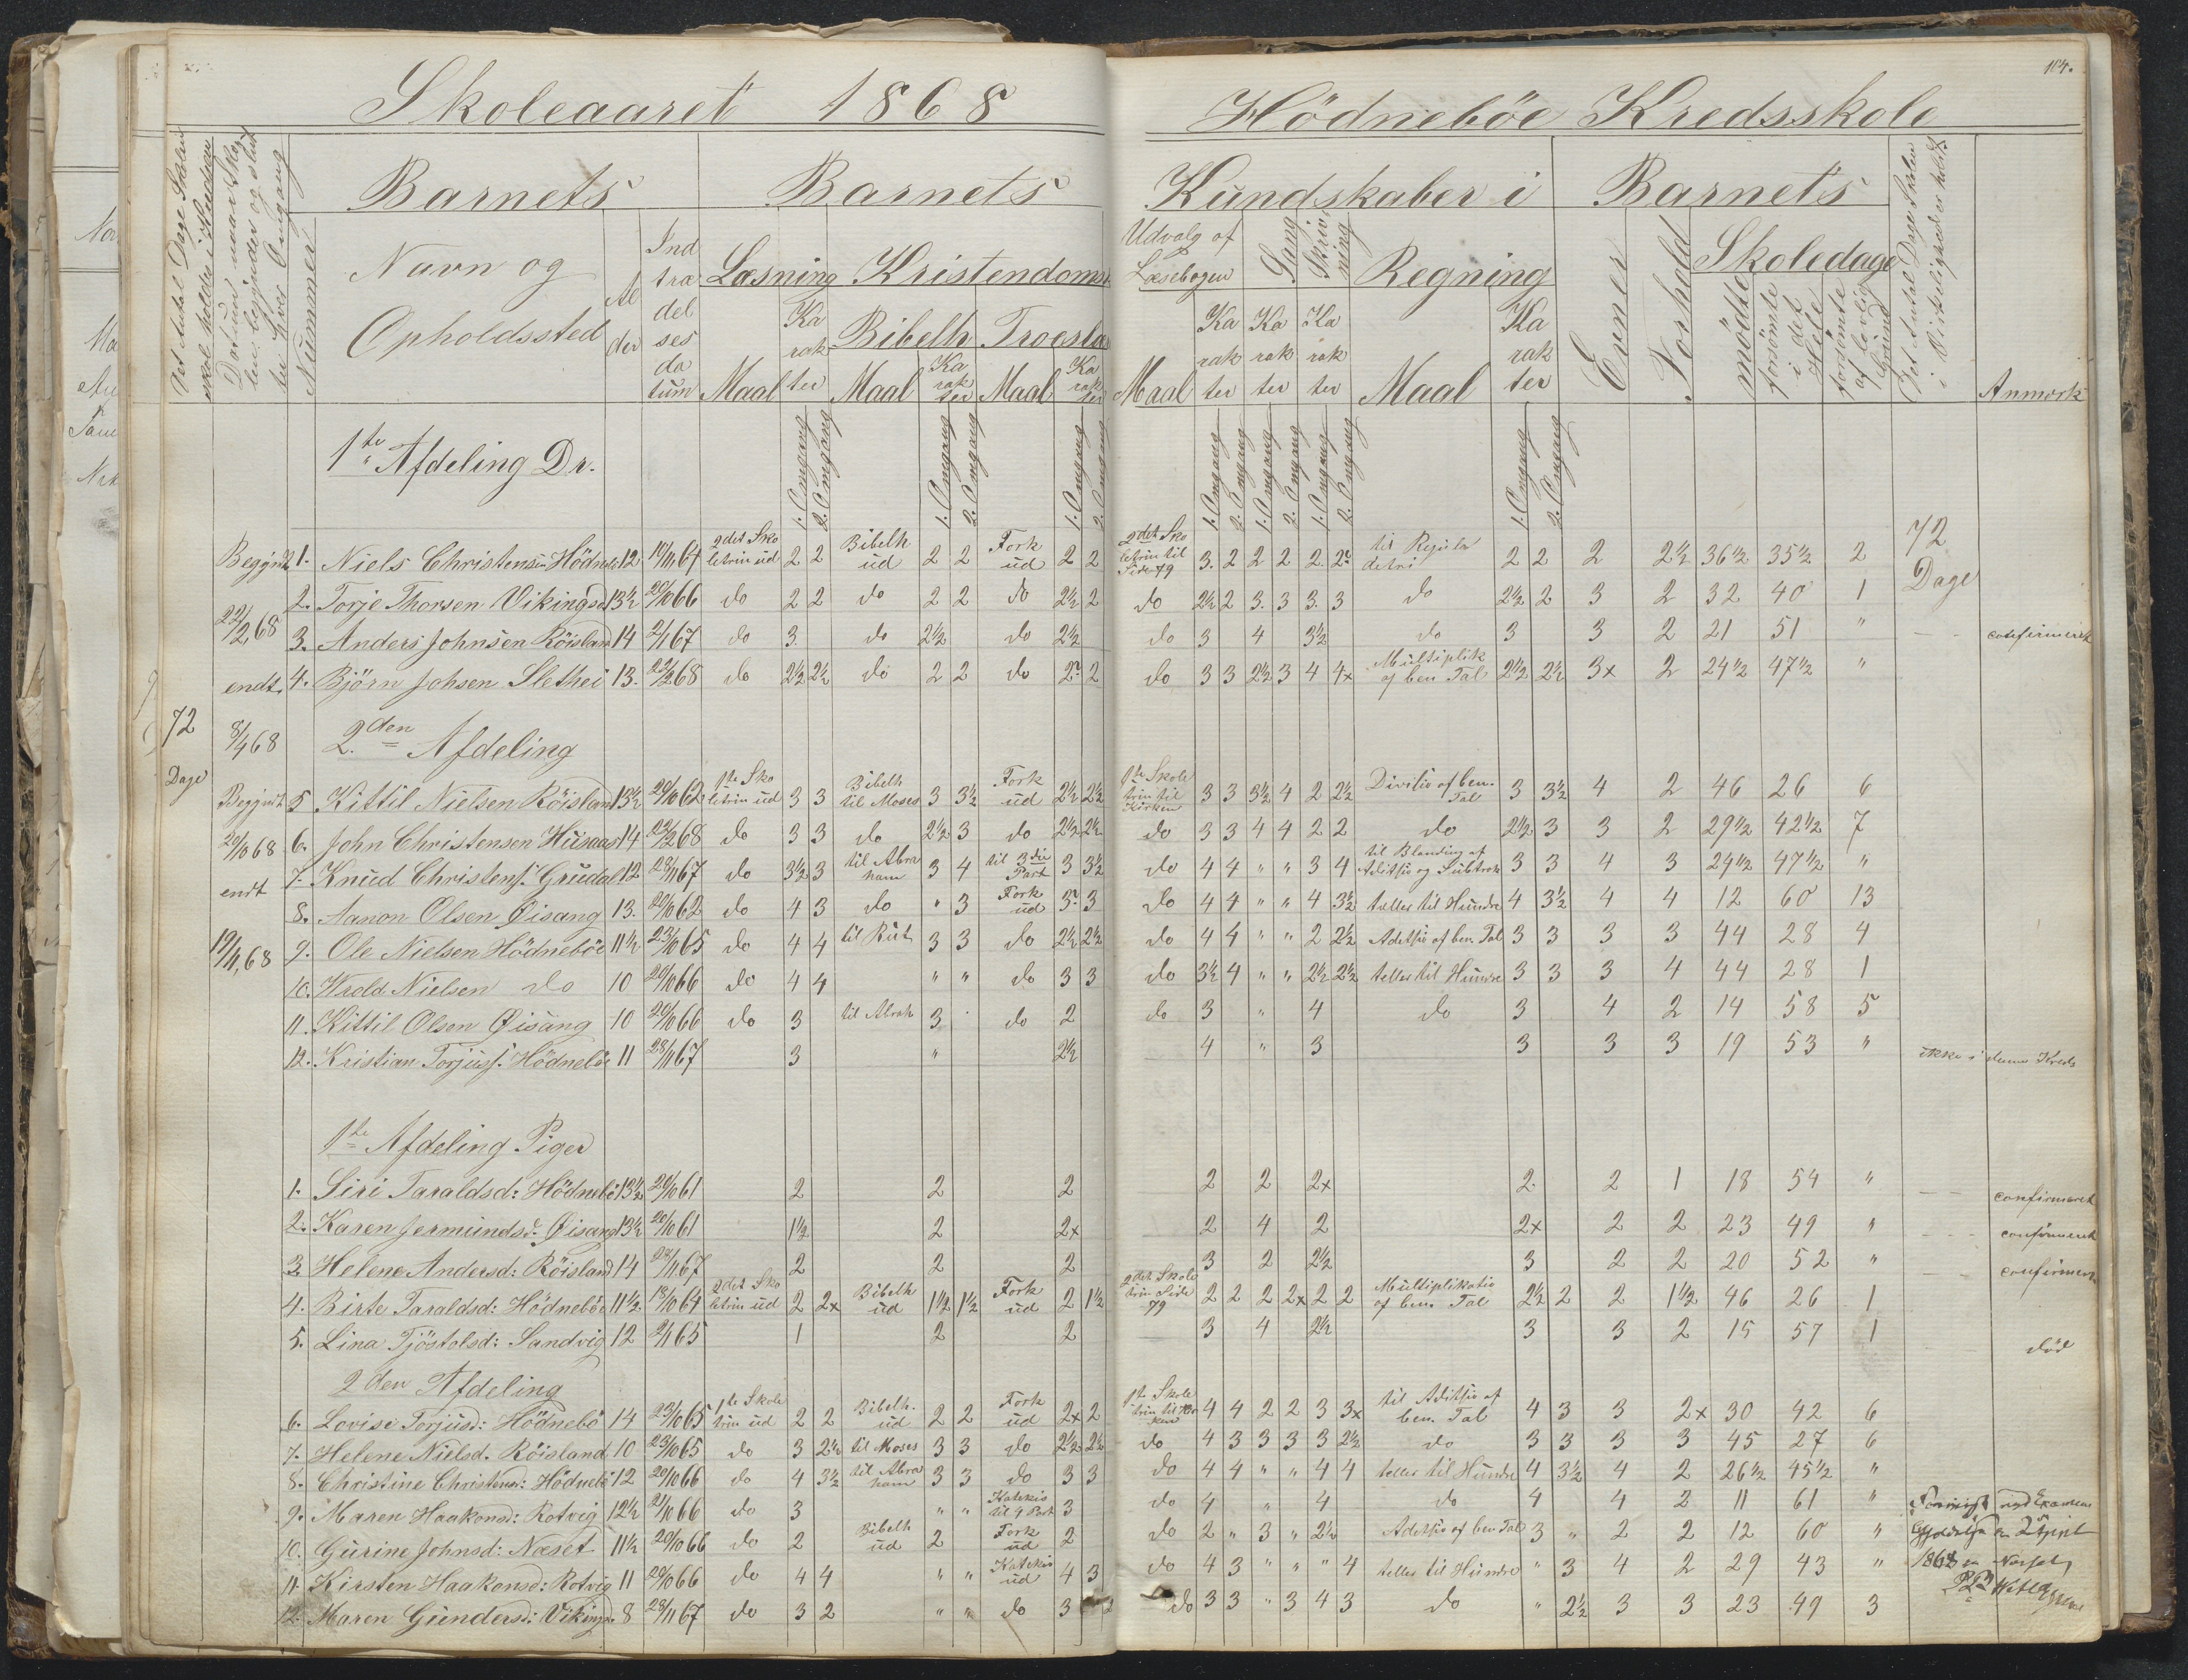 Skoleaaret 1868 Hödneböe Kredsskole
Barnets Barnets Kundskaber i Barnets
Det Antal Dage Skolen
skal holdes i Kredsen
Datum naar Sko
len begynder og slut
ter hver Omgang
Nummer
Navn og
Opholdssted
Al
der
Ind
træ
del
ses
da
tum
Læsning Kristendoms
Maal
Ka
rak
ter
Bibelh Troeslæ
Maal
Ka
rak
ter
Maal
Ka
rak
ter
Udvalg af
Læsebogen
Maal
Ka
rak
ter
Sang
Ka
rak
ter
Skriv
ning
Ka
rak
ter
Regning
Maal
Ka
rak
ter
Evner
Forhold
Skoledage
mödte
forsömte
i det
Hele
forsömte
af lovlig
Grund
Det Antal Dage Skolen
i Virkeligheden holdt
Anmærk
1te Afdeling Dr.
1. Omgang 2. Omgang 1. Omgang 2. Omgang 1. Omgang 2. Omgang 1. Omgang 2. Omgang 1. Omgang 2. Omgang 1. Omgang 2. Omgang
72
Dage
Begyndt
22/2 68
endt
8/4 68
Begyndt
20/10 68
endt
19/11 68
1. Niels Christensen Hödneb 12 10/11 64 2det Sko letrin ud 2 2 Bibelh ud 2 2 Fork ud 2 2 2det Sko letrin til Side 79 3. 2 2 2 2. 2 til Regula detri 2 2 2 2½ 36½ 35½ 2 72 Dage
2. Torje Thorsen Vikingsd 13½ 20/10 66 do 2 2 do 2 2 do 2½ 2 do 2½ 2 3. 3 3. 3 do 2½ 2 3 2 32 40 1
3. Anders Johnsen Röisland 14 2/1 67 do 3. do 2½ do 2½ do 3 4 3½ do 3 3 2 21 51 " confirmeret
4. Björn Johsen Slethei 13. 22/2 68 do 2½ 2½ do 2 2 do 2. 2 do 3 3 2½ 3 4 4x Multiplik af ben Tal 2½ 2½ 3x 2 24½ 47½ "
2den Afdeling
5 Kittil Nielsen Röisland 13½ 20/10 62 1te Sko letrin ud 3 3 Bibelh til Moses 3 3½ Fork ud 2½ 2½ 1te Skole trin til Kirken 3 3 3½ 4 2 2½ Divitio af ben. Tal 3 3½ 4 2 46 26 6
6. John Christensen Husaas 14 22/2 68 do 3 3 do 2½ 3 do 2½ 2½ do 3 3 4 4 2 2 do 2½ 3 3 2 29½ 42½ 7
7. Knud Christens. Grudal 12 28/11 67 do 3½ 3 til Abra ham 3 4 til 3die Part 3 3½ do 4 4 " " 3 4 til Blanding af Aditsio og Subtrak 3 3 4 3 24½ 47½ "
8. Aanon Olsen Öisang 13. 20/10 62 do 4 3 do " 3 Fork ud 3. 3 do 4 4 " " 4 3½ tæller til Hundre 4 3½ 4 4 12 60 13
9. Ole Nielsen Hödneböe 11½ 23/10 65 do 4 4 til Rut 3 3 do 2½ 2½ do 4 4 " " 2 2½ Aditsio af ben. Tal 3 3 3 3 44 28 4
10. Nielsen do 10 20/10 66 do 4 4 " " do 3 3 do 3½ 4 " " 2½ 2½ tæller til Hundre 3 3 3 4 44 28 1
11. Kittil Olsen Öisang 10 20/10 66 do 3 til Abrah 3 do 2 do 3 " 4 do 3 4 2 14 58 5
12. Kristian Torjus. Hödneböe 11 28/11 67 3 " 2½ 4 " 3 3 3 3 19 53 " ikke i denne Kreds
1te Afdeling Piger
1. Siri Taraldsd: Hödneböe 13½ 20/10 61 2 2 2 2 2 2x 2 2 1 18 54 " confirmeret
2. Karen Jermundsd: Öisang 13½ 20/10 61 1½ 2 2x 2 4 2 2x 2 2 23 49 " confirmeret
3. Helene Andersd: Röisland 14 28/11 67 2 2 2 3 2 2½ 3 2 2 20 52 " confirmeret
4. Birte Taraldsd: Hödneböe 11½ 18/10 64 2det Sko letrin ud 2 2x Bibelh ud 1½ 1½ Fork ud 2 1½ 2det Skole trin Side 79 2 2 2 2x 2 2 Multiplikatio af ben. Tal 2½ 2 2 1½ 46 26 1
5. Lina Tjöstolsd: Sandvig 12 2/1 65 1 2 2 3 4 2½ 3 3 2 15 57 1 död
2den Afdeling
6. Lovise Torjusd: Hödneböe 14 23/10 65 1te Skole trin ud 2 2 Bibelh. ud 2 2 Fork ud 2x 2 1te Skole trin til Kir ken 4 4 2 2 3 3x til Aditsio af ben. Tal 4 3 3 2x 30 42 6
7. Helene Nielsd. Röisland 10 23/10 65 do 3 2½ til Moses 3 3 do 2½ 2½ do 4 3 3 3 3 2½ do 3 3 3 3 45 27 6
8. Christine Christensd: Hödneböe 12 20/10 66 do 4 3½ til Abra ham 3 3 do 3 3 do 4 4 " " 4 4 tæller til Hundre 4 3½ 4 2 26½ 45½ "
9. Maren Haakonsd: Rotvig 12½ 21/10 66 do 3 " " Katekis til 4 Part 3 do 4 " 4 do 4 4 2 11 61 "
10. Gurine Johnsd: Næset 11½ 20/10 66 do 2 Bibelh ud 2 Fork ud 2 do 2 " 3 " 2½ Aditsio af ben Tal 3 " 2 2 12 60 "
11. Kirsten Haakonsd: Rotvig 11 20/10 66 do 4 4 " " Katekis ud 4 3 do 4 3 " " " 4 tæller til Hundre " 3 4 2 29 43 "
12. Maren Gundersd: Vikingsd 8 28/11 67 do 3 2 " " do 3 2 do 3 3 " 3 4 3 do " 2½ 3 3 23 49 3
ved Examen
1868